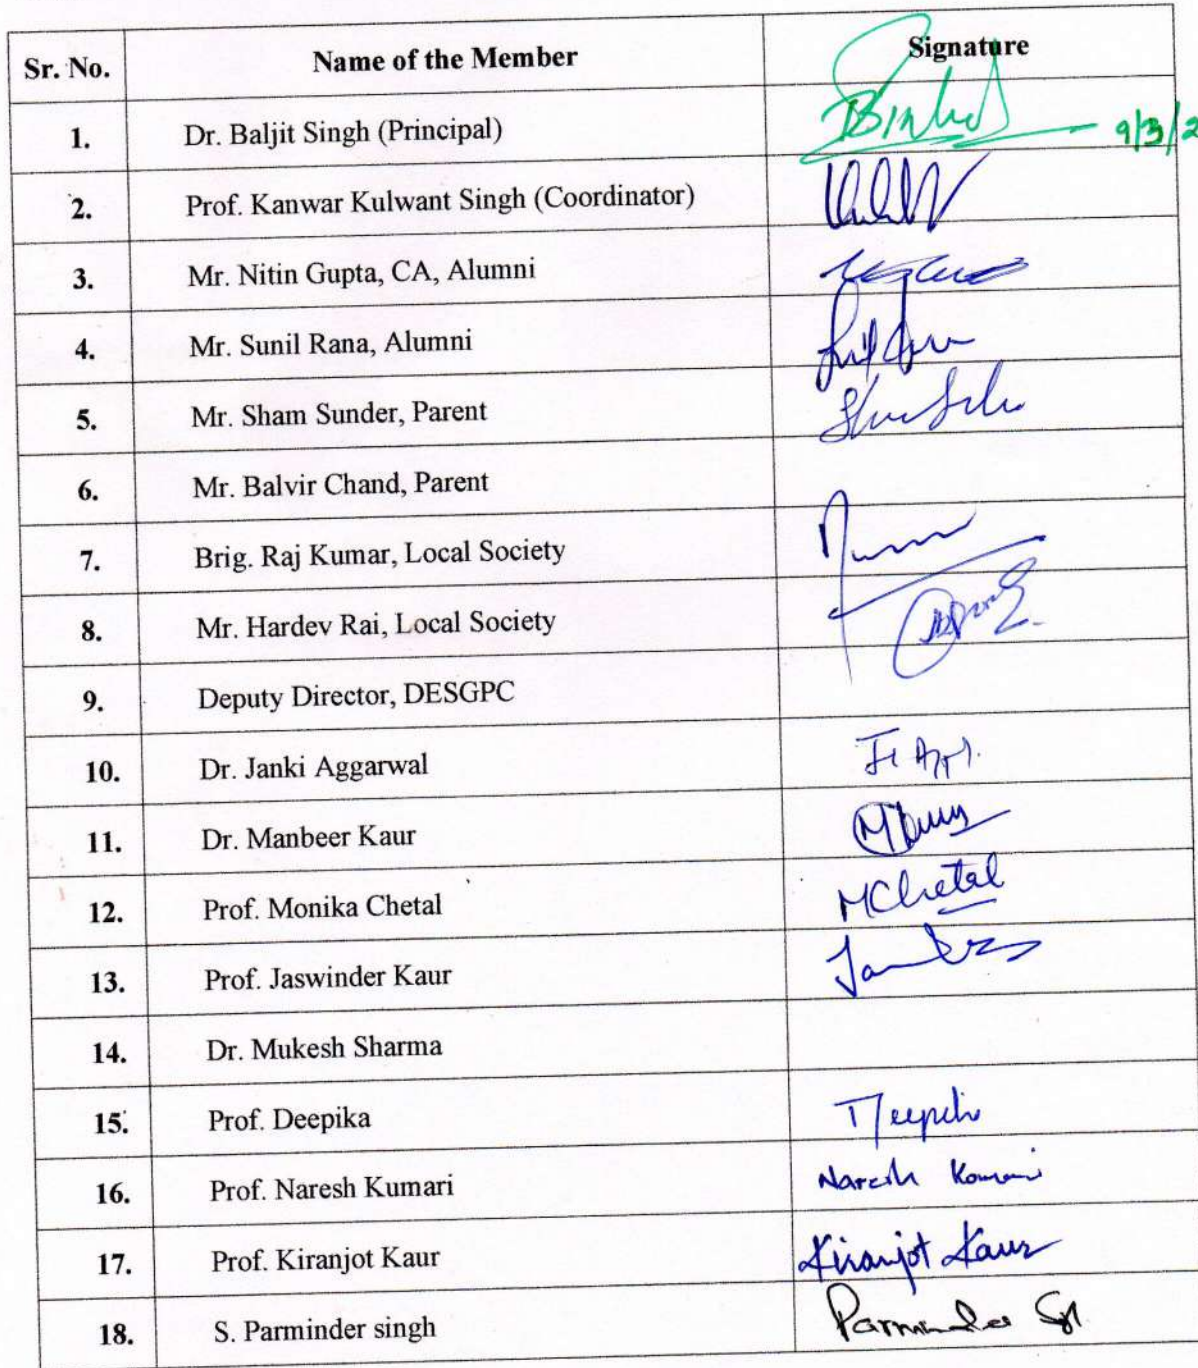 Sr. No. Name of the Member Signature
1. Dr. Baljit Singh (Principal) 9/3/2
2. Prof. Kanwar Kulwant Singh (Coordinator)
3. Mr. Nitin Gupta, CA, Alumni
4. Mr. Sunil Rana, Alumni
5. Mr. Sham Sunder, Parent
6. Mr. Balvir Chand, Parent
7. Brig. Raj Kumar, Local Society
8. Mr. Hardev Rai, Local Society
9. Deputy Director, DESGPC
10. Dr. Janki Aggarwal
11. Dr. Manbeer Kaur
12. Prof. Monika Chetal MChetal
13. Prof. Jaswinder Kaur
14. Dr. Mukesh Sharma
15. Prof. Deepika
16. Prof. Naresh Kumari Naresh Kumari
17. Prof. Kiranjot Kaur Kiranjot Kaur
18. S. Parminder singh Parminder